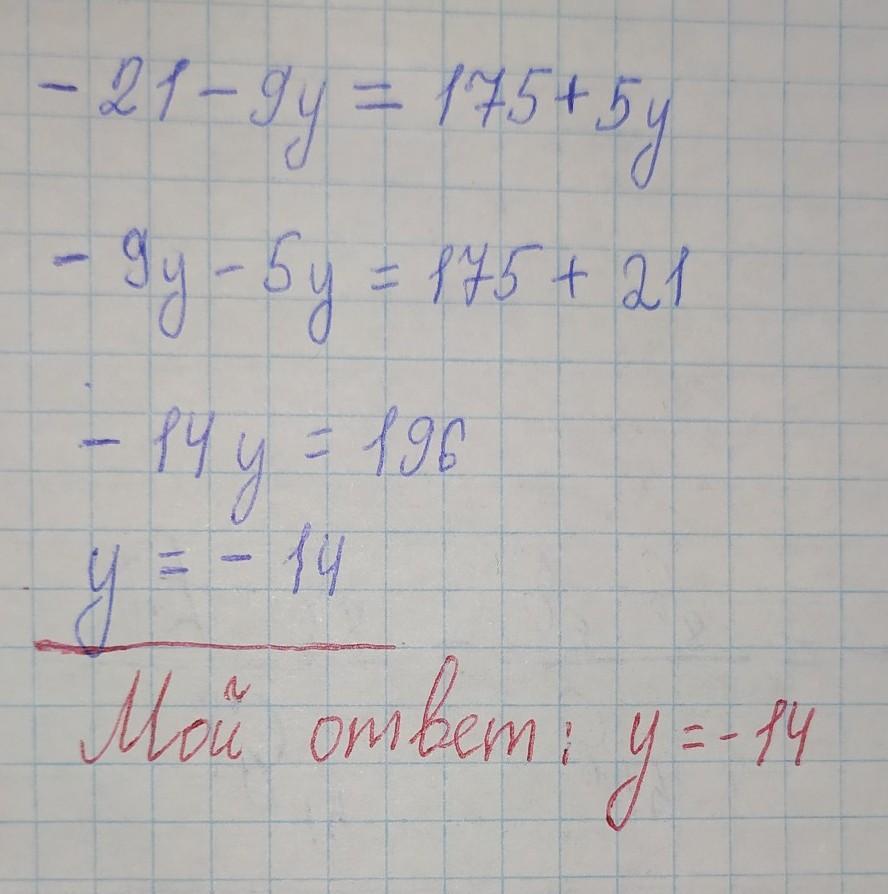 - 21 - 9y = 175 + 5y
- 9y - 5y = 175 + 21
- 14y = 196
y = - 14
Мой ответ: y = - 14